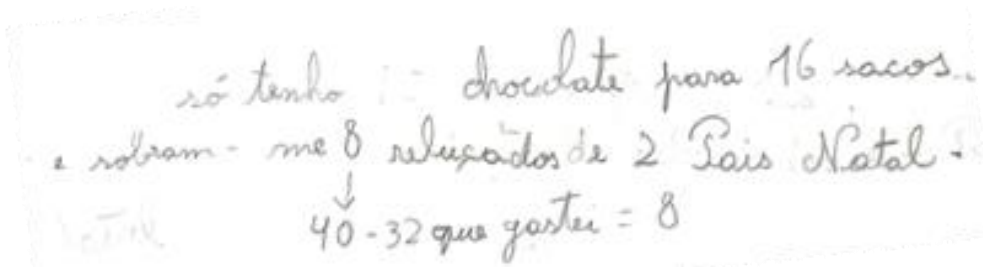 só tenho chocolate para 16 sacos.
e sobram-me 8 rebuçados e 2 Pais Natal.
↓
40-32 que gastei = 8